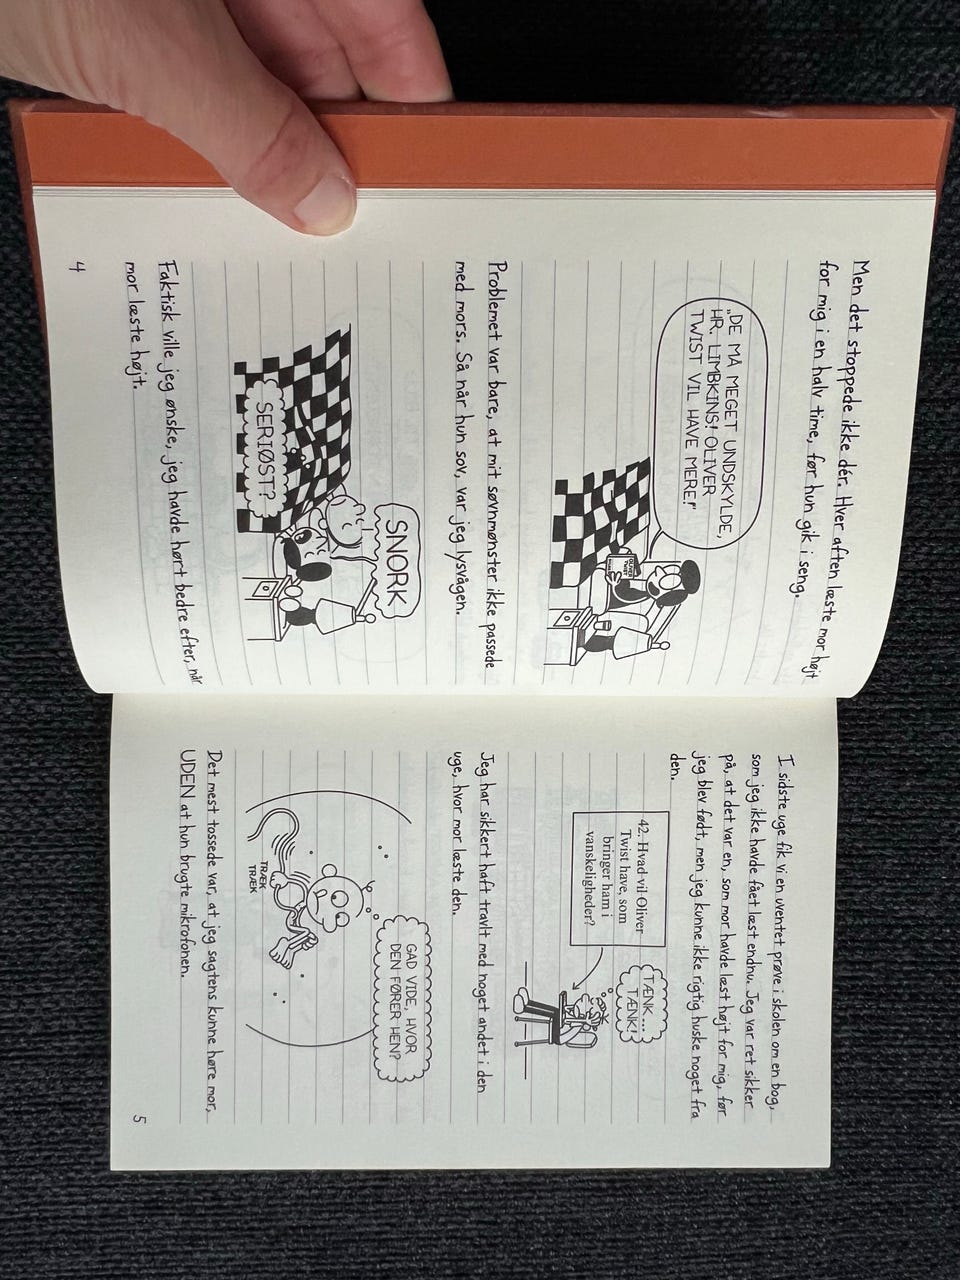 Men det stoppede ikke dér. Hver aften læste mor højt
for mig i en halv time, før hun gik i seng.
"DE MÅ MEGET UNDSKYLDE,
HR. LIMBKINS! OLIVER
TWIST VIL HAVE MERE!"
OLIVER
TWIST
Problemet var bare, at mit søvnmønster ikke passede
med mors. Så når hun sov, var jeg lysvågen.
SNORK
SERIØST?
Faktisk ville jeg ønske, jeg havde hørt bedre efter, når
mor læste højt.
4
I sidste uge fik vi en uventet prøve i skolen om en bog,
som jeg ikke havde fået læst endnu. Jeg var ret sikker
på, at det var en, som mor havde læst højt for mig, før
jeg blev født, men jeg kunne ikke rigtig huske noget fra
den.
42. Hvad vil Oliver
Twist have, som
bringer ham i
vanskeligheder?
TÆNK...
TÆNK!
Jeg har sikkert haft travlt med noget andet i den
uge, hvor mor læste den.
GAD VIDE, HVOR
DEN FØRER HEN?
TRÆK
TRÆK
Det mest tossede var, at jeg sagtens kunne høre mor,
UDEN at hun brugte mikrofonen.
5